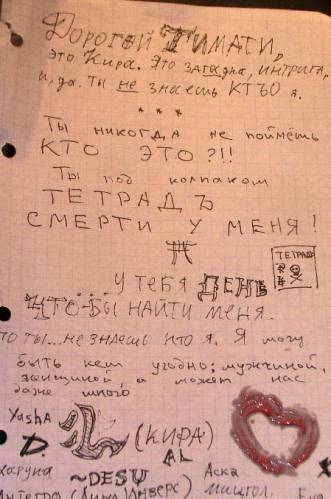 Дорогой Тимати,
это Кира. Это загадка, интрига,
и, да. Ты не знаешь КТЪО я.
* * *
Ты никогда не поймёшь
КТО ЭТО?!!
Ты под колпаком
ТЕТРАДЪ
СМЕРТИ У МЕНЯ!
ТЕТРАДЬ
У ТЕБЯ ДЕНЬ
ЧТО-БЫ НАЙТИ МЕНЯ.
то ты... не знаешь кто я. Я могу
быть кем угодно: мужчиной,
женщиной, а может нас
даже много
YashA
D.
(КИРА)
AL
~DESU
Харуна
Аска
(Лина Инверс)